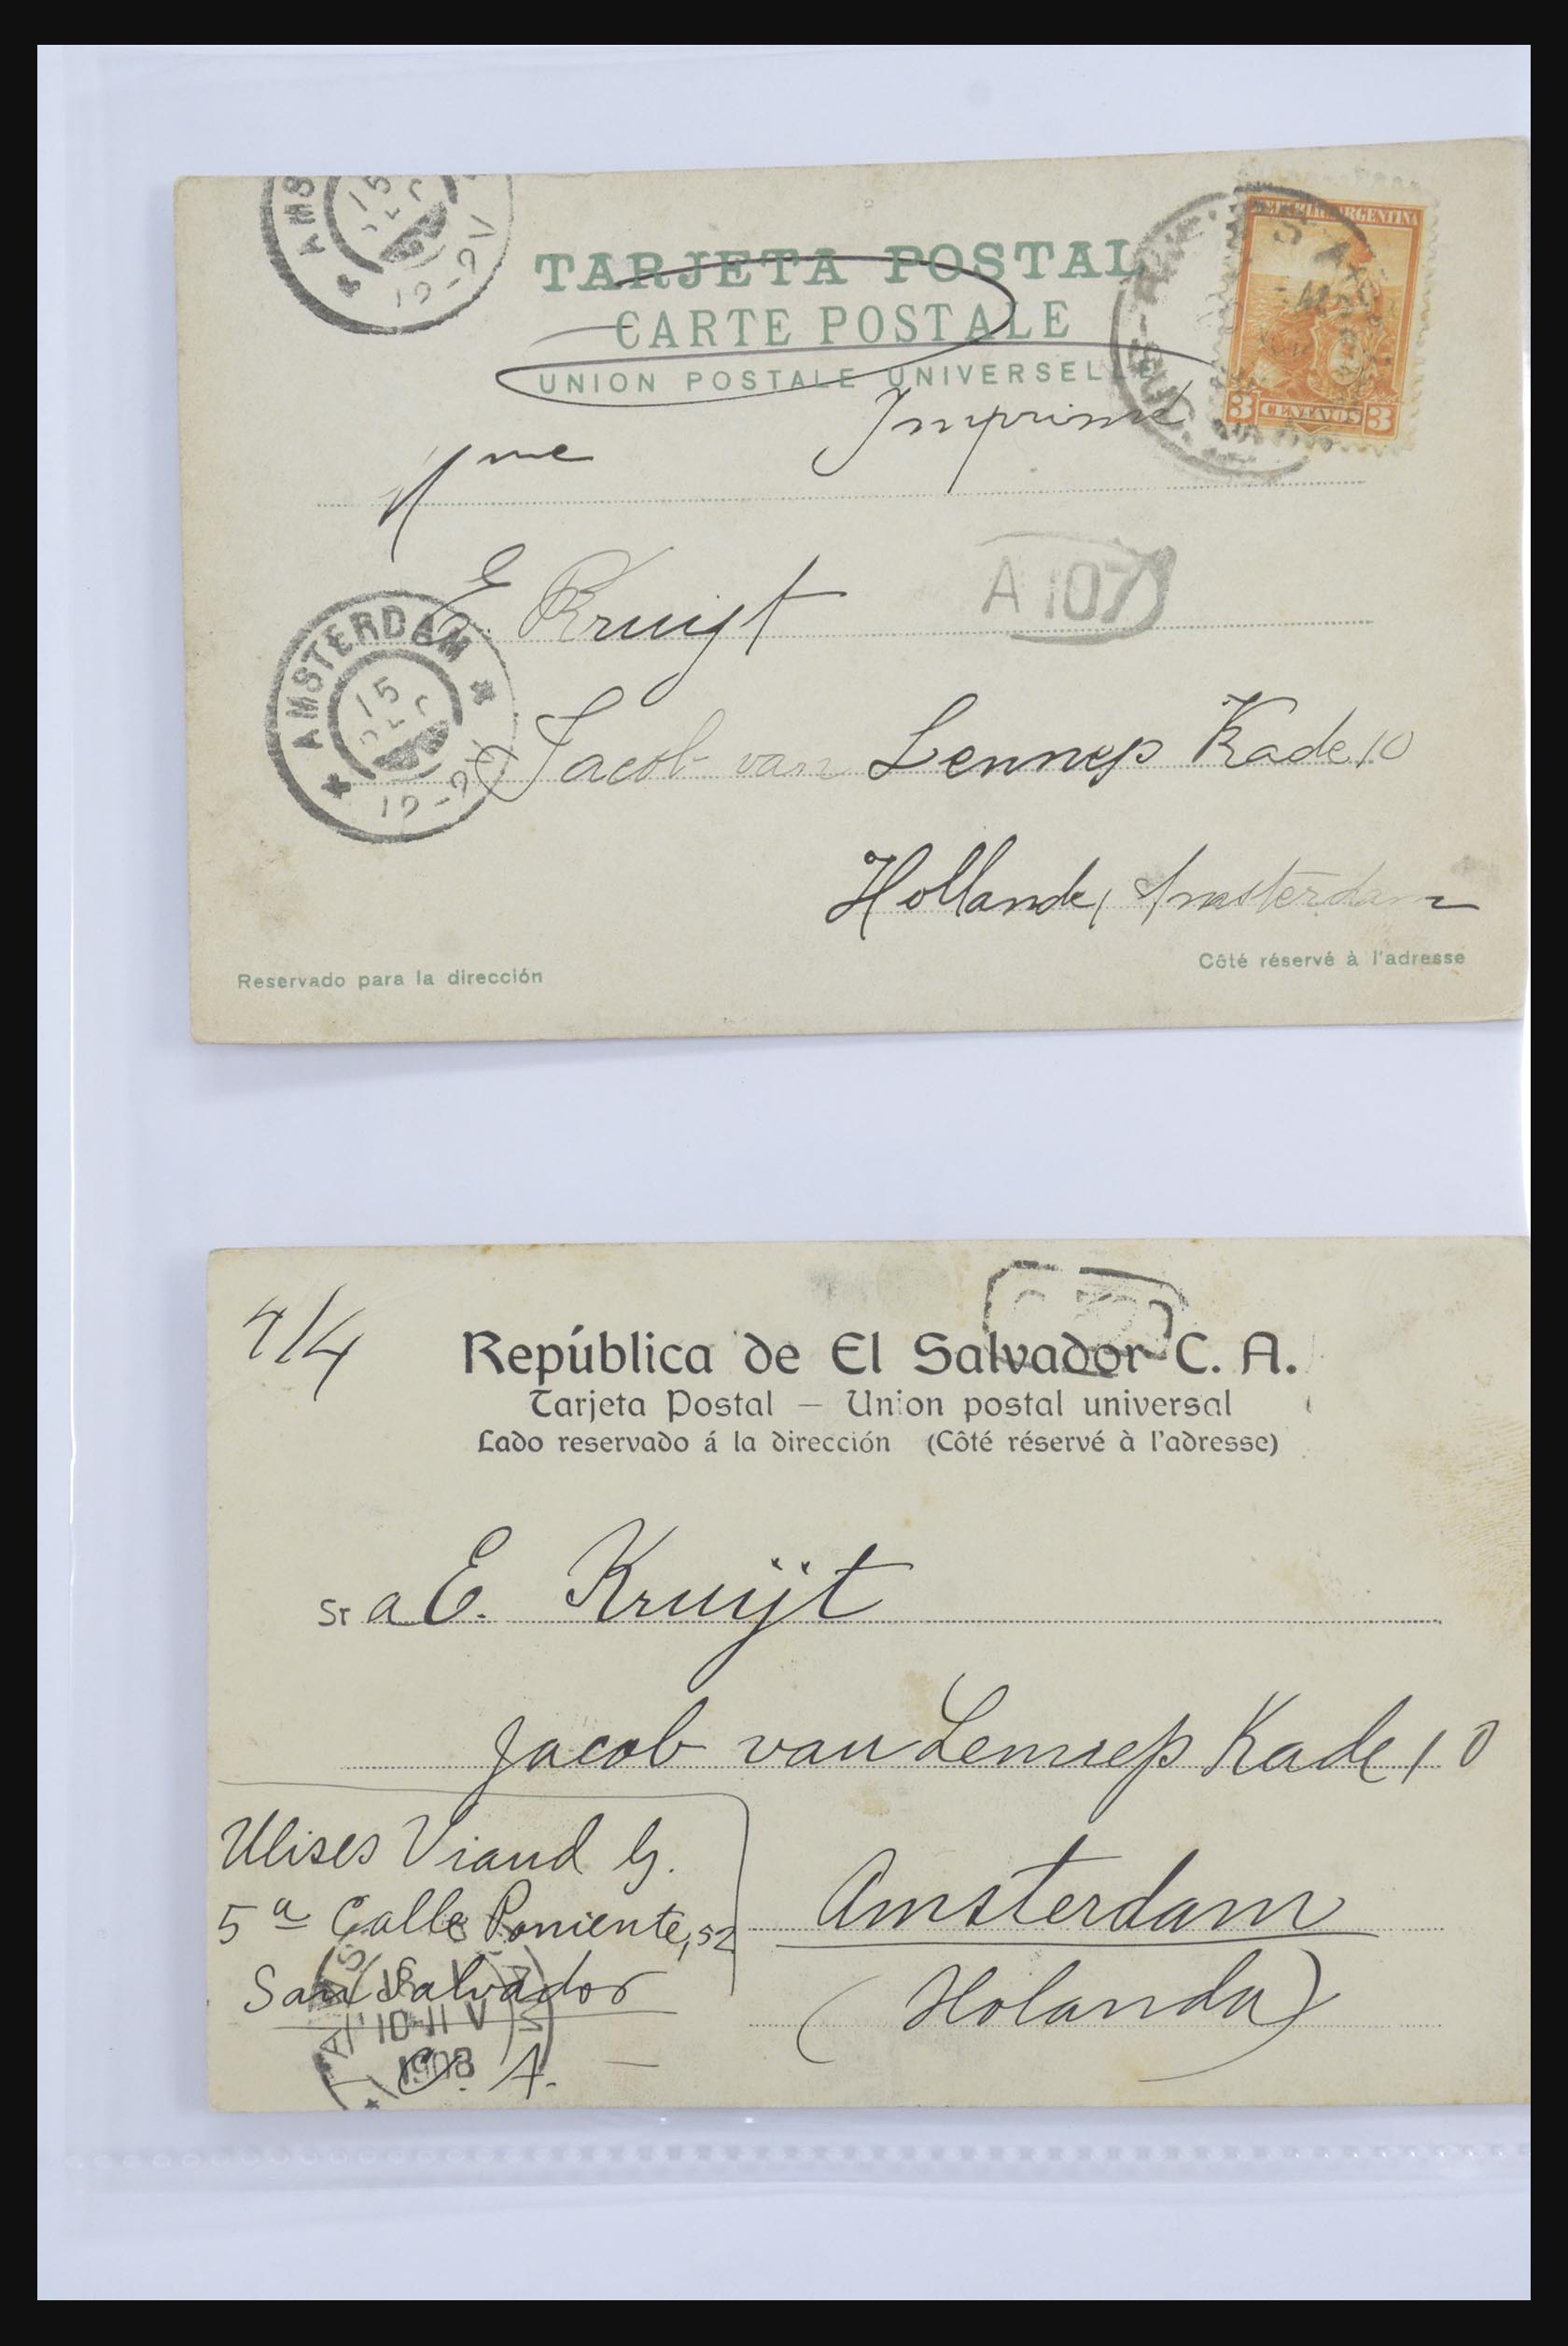 TARJETA POSTAL
CARTE POSTALE
UNION POSTALE UNIVERSELLE
REPUBLICA ARGENTINA
3 CENTAVOS 3
Imprimé
Mme
E. Kruijt
A 107
Jacob van Lennep Kade 10
Hollande, Amsterdam
AMS
15
12-2V
AMSTERDAM
15
12-2V
Reservado para la dirección
Côté réservé à l'adresse
7/4
República de El Salvador C. A.
Tarjeta Postal — Union postal universal
Lado reservado á la dirección (Côté réservé à l'adresse)
Sr a E. Kruijt
Jacob van Lennep Kade 10
Ulises Viaud G.
5a Calle Poniente, 52
San Salvador
C. A.
Amsterdam
(Holanda)
10-11 V
1908